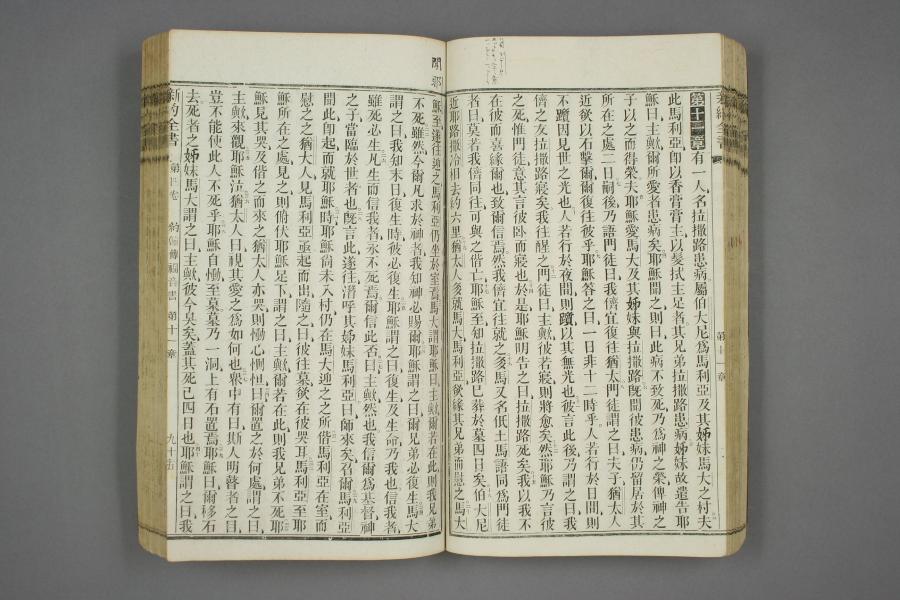 第十一章 有一人名拉撒路患病屬伯大尼爲馬利亞及其姊妹馬大之村夫
此馬利亞卽以香膏膏主以髮拭主足者其兄弟拉撒路患病姊妹故遣告耶
穌曰主歟爾所愛者患病矣耶穌聞之則曰此病不致死乃爲神之榮俾神之
子以之而得榮夫耶穌愛馬大及其姊妹與拉撒路旣聞彼患病仍留居於其
所在之處二日嗣後乃語門徒曰我儕宜復往猶太門徒謂之曰夫子猶太人
近欲以石擊爾爾復往彼乎耶穌答之曰一日非十二時乎人若行於日間則
不躓因見世之光也人若行於夜間則躓以其無光也彼言此後乃謂之曰我
儕之友拉撒路寢矣我往醒之門徒曰主歟彼若寢則將愈矣然耶穌乃言彼
之死惟門徒意其言彼卧而寢也於是耶穌明告之曰拉撒路死矣我以我不
在彼而喜緣爾也致爾信焉然我儕宜往就之多馬又名低土馬語同爲門徒
者曰莫若我儕同往可與之偕亡耶穌至知拉撒路已葬於墓四日矣伯大尼
近耶路撒冷相去約六里猶太人多就馬大馬利亞欲緣其兄弟而慰之馬大
聞耶
穌至遂往迎之馬利亞仍坐於室焉馬大謂耶穌曰主歟爾若在此則我兄弟
不死雖然今爾凡求於神者我知神必賜爾耶穌謂之曰爾兄弟必復生馬大
謂之曰我知末日復生時彼必復生耶穌謂之曰復生及生命乃我也信我者
雖死必生凡生而信我者永不死焉爾信此否曰主歟然也我信爾爲基督神
之子當臨於世者也旣言此遂往潛呼其姊妹馬利亞曰師來矣召爾馬利亞
聞此卽起而就耶穌時耶穌尙未入村仍在馬大迎之之所偕馬利亞在室而
慰之之猶太人見馬利亞亟起而出隨之曰彼往墓欲在彼哭耳馬利亞至耶
穌所在之處見之則俯伏耶穌足下謂之曰主歟爾若在此則我兄弟不死耶
穌見其哭及偕之而來之猶太人亦哭則慟心惻怛曰爾置之於何處謂之曰
主歟來觀耶穌泣猶太人曰視其愛之爲如何也衆中有曰斯人明瞽者之目
豈不能使此人不死乎耶穌自慟至墓墓乃一洞上有石置焉耶穌曰爾移石
去死者之姊妹馬大謂之曰主歟彼今臭矣蓋其死已四日也耶穌謂之曰我
新約全書 第四卷 約翰傳福音書 第十一章